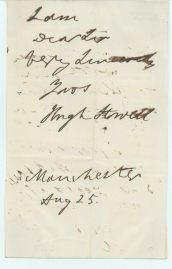 I am
Dear Sir
Very Sincerely
Yours
Hugh Howell
Manchester
Aug 25.